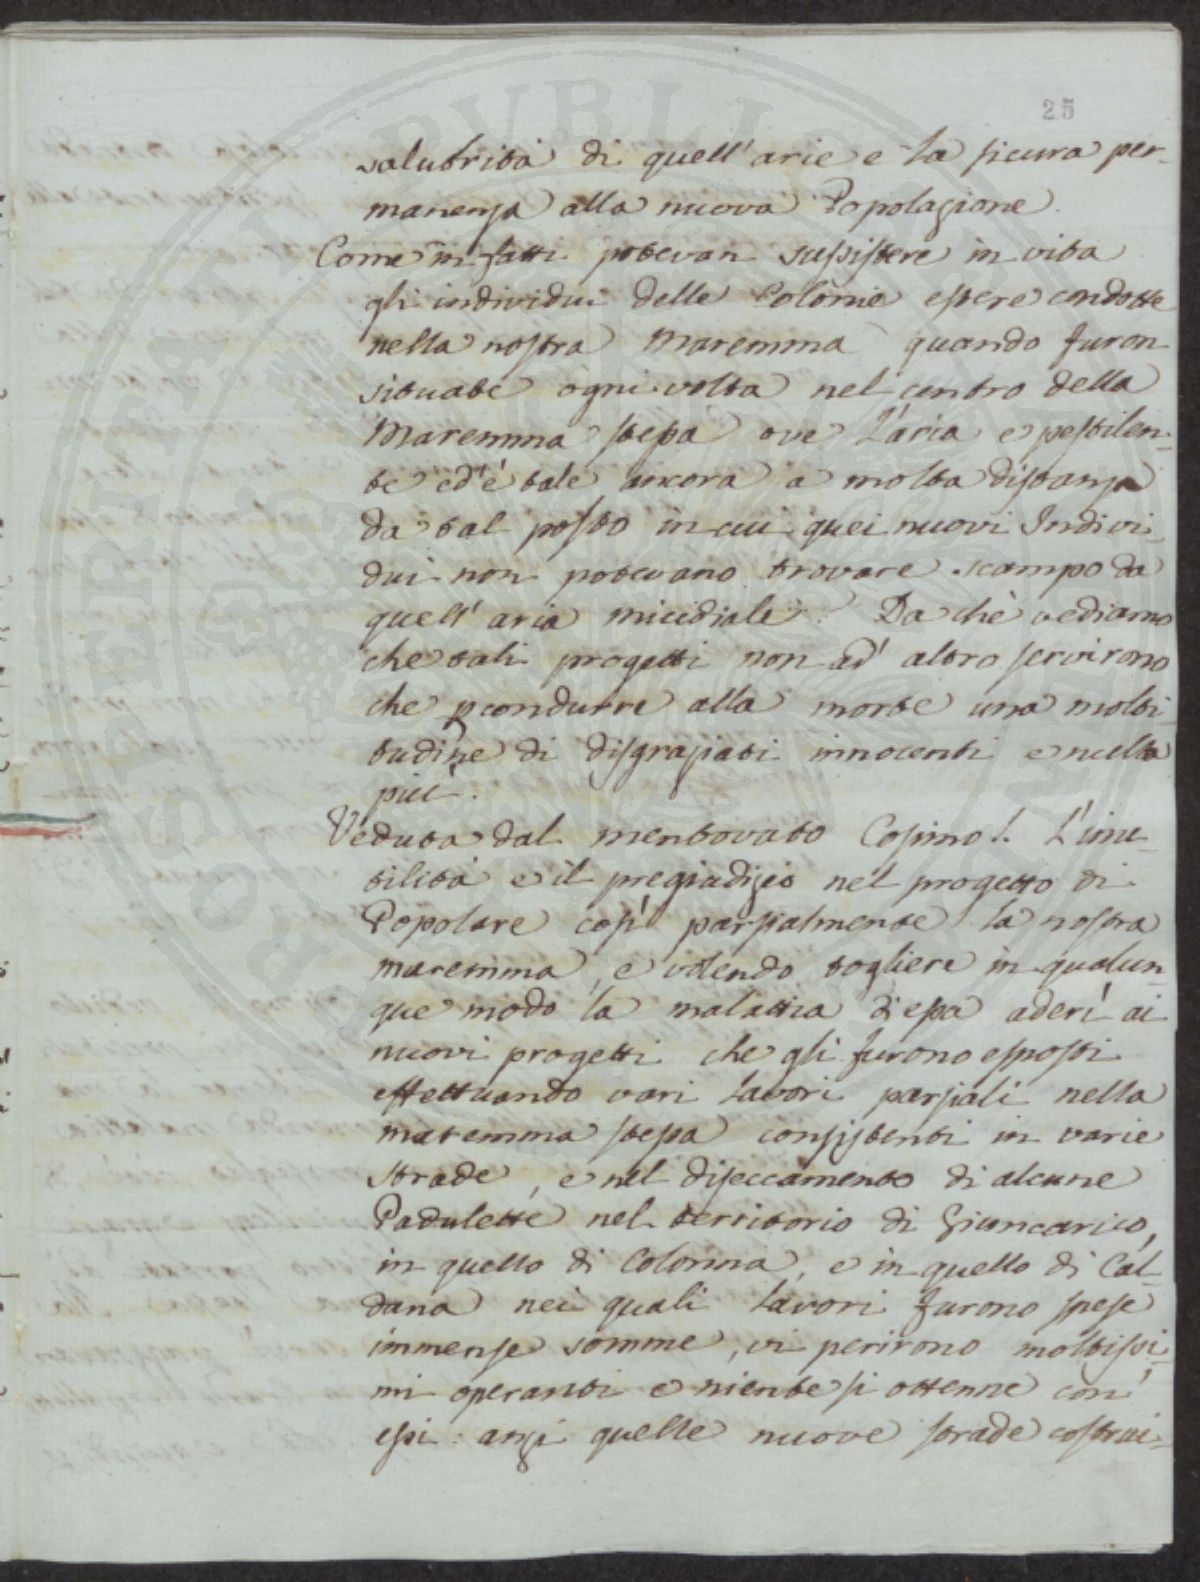 25
salubrità di quell'arie e la sicura per-
manenza alla nuova Popolazione.
Come in fatti potevan sussistere in vita
gli individui delle Colonie estere condotte
nella nostra Maremma quando furon
situate ogni volta nel centro della
Maremma stessa ove l'aria e pestilen-
te ed'è tale ancora a molta distanza
da tal posto in cui quei nuovi Indivi-
dui non potevano trovare scampo da
quell'aria micidiale? Da chè vediamo
che tali progetti non ad' altro servirono
che p condurre alla morte una molti-
tudine di disgraziati innocenti e nulla
più.
Veduta dal mentovato Cosimo I. L'inu-
tilità e il pregiudizio nel progetto di
Popolare così parzialmente la nostra
maremma, e volendo togliere in qualun-
que modo la malattia d'essa aderì ai
nuovi progetti che gli furono esposti
effettuando vari lavori parziali nella
maremma stessa consistenti in varie
strade, e nel diseccamento di alcune
Padulette nel territorio di Giuncarico,
in quello di Colonna, e in quello di Cal-
dana nei quali lavori furono spese
immense somme, vi perirono moltissi-
mi operanti e niente si ottenne con'
essi: anzi quelle nuove strade costrui-
PROSPERITATI PUBLICAE